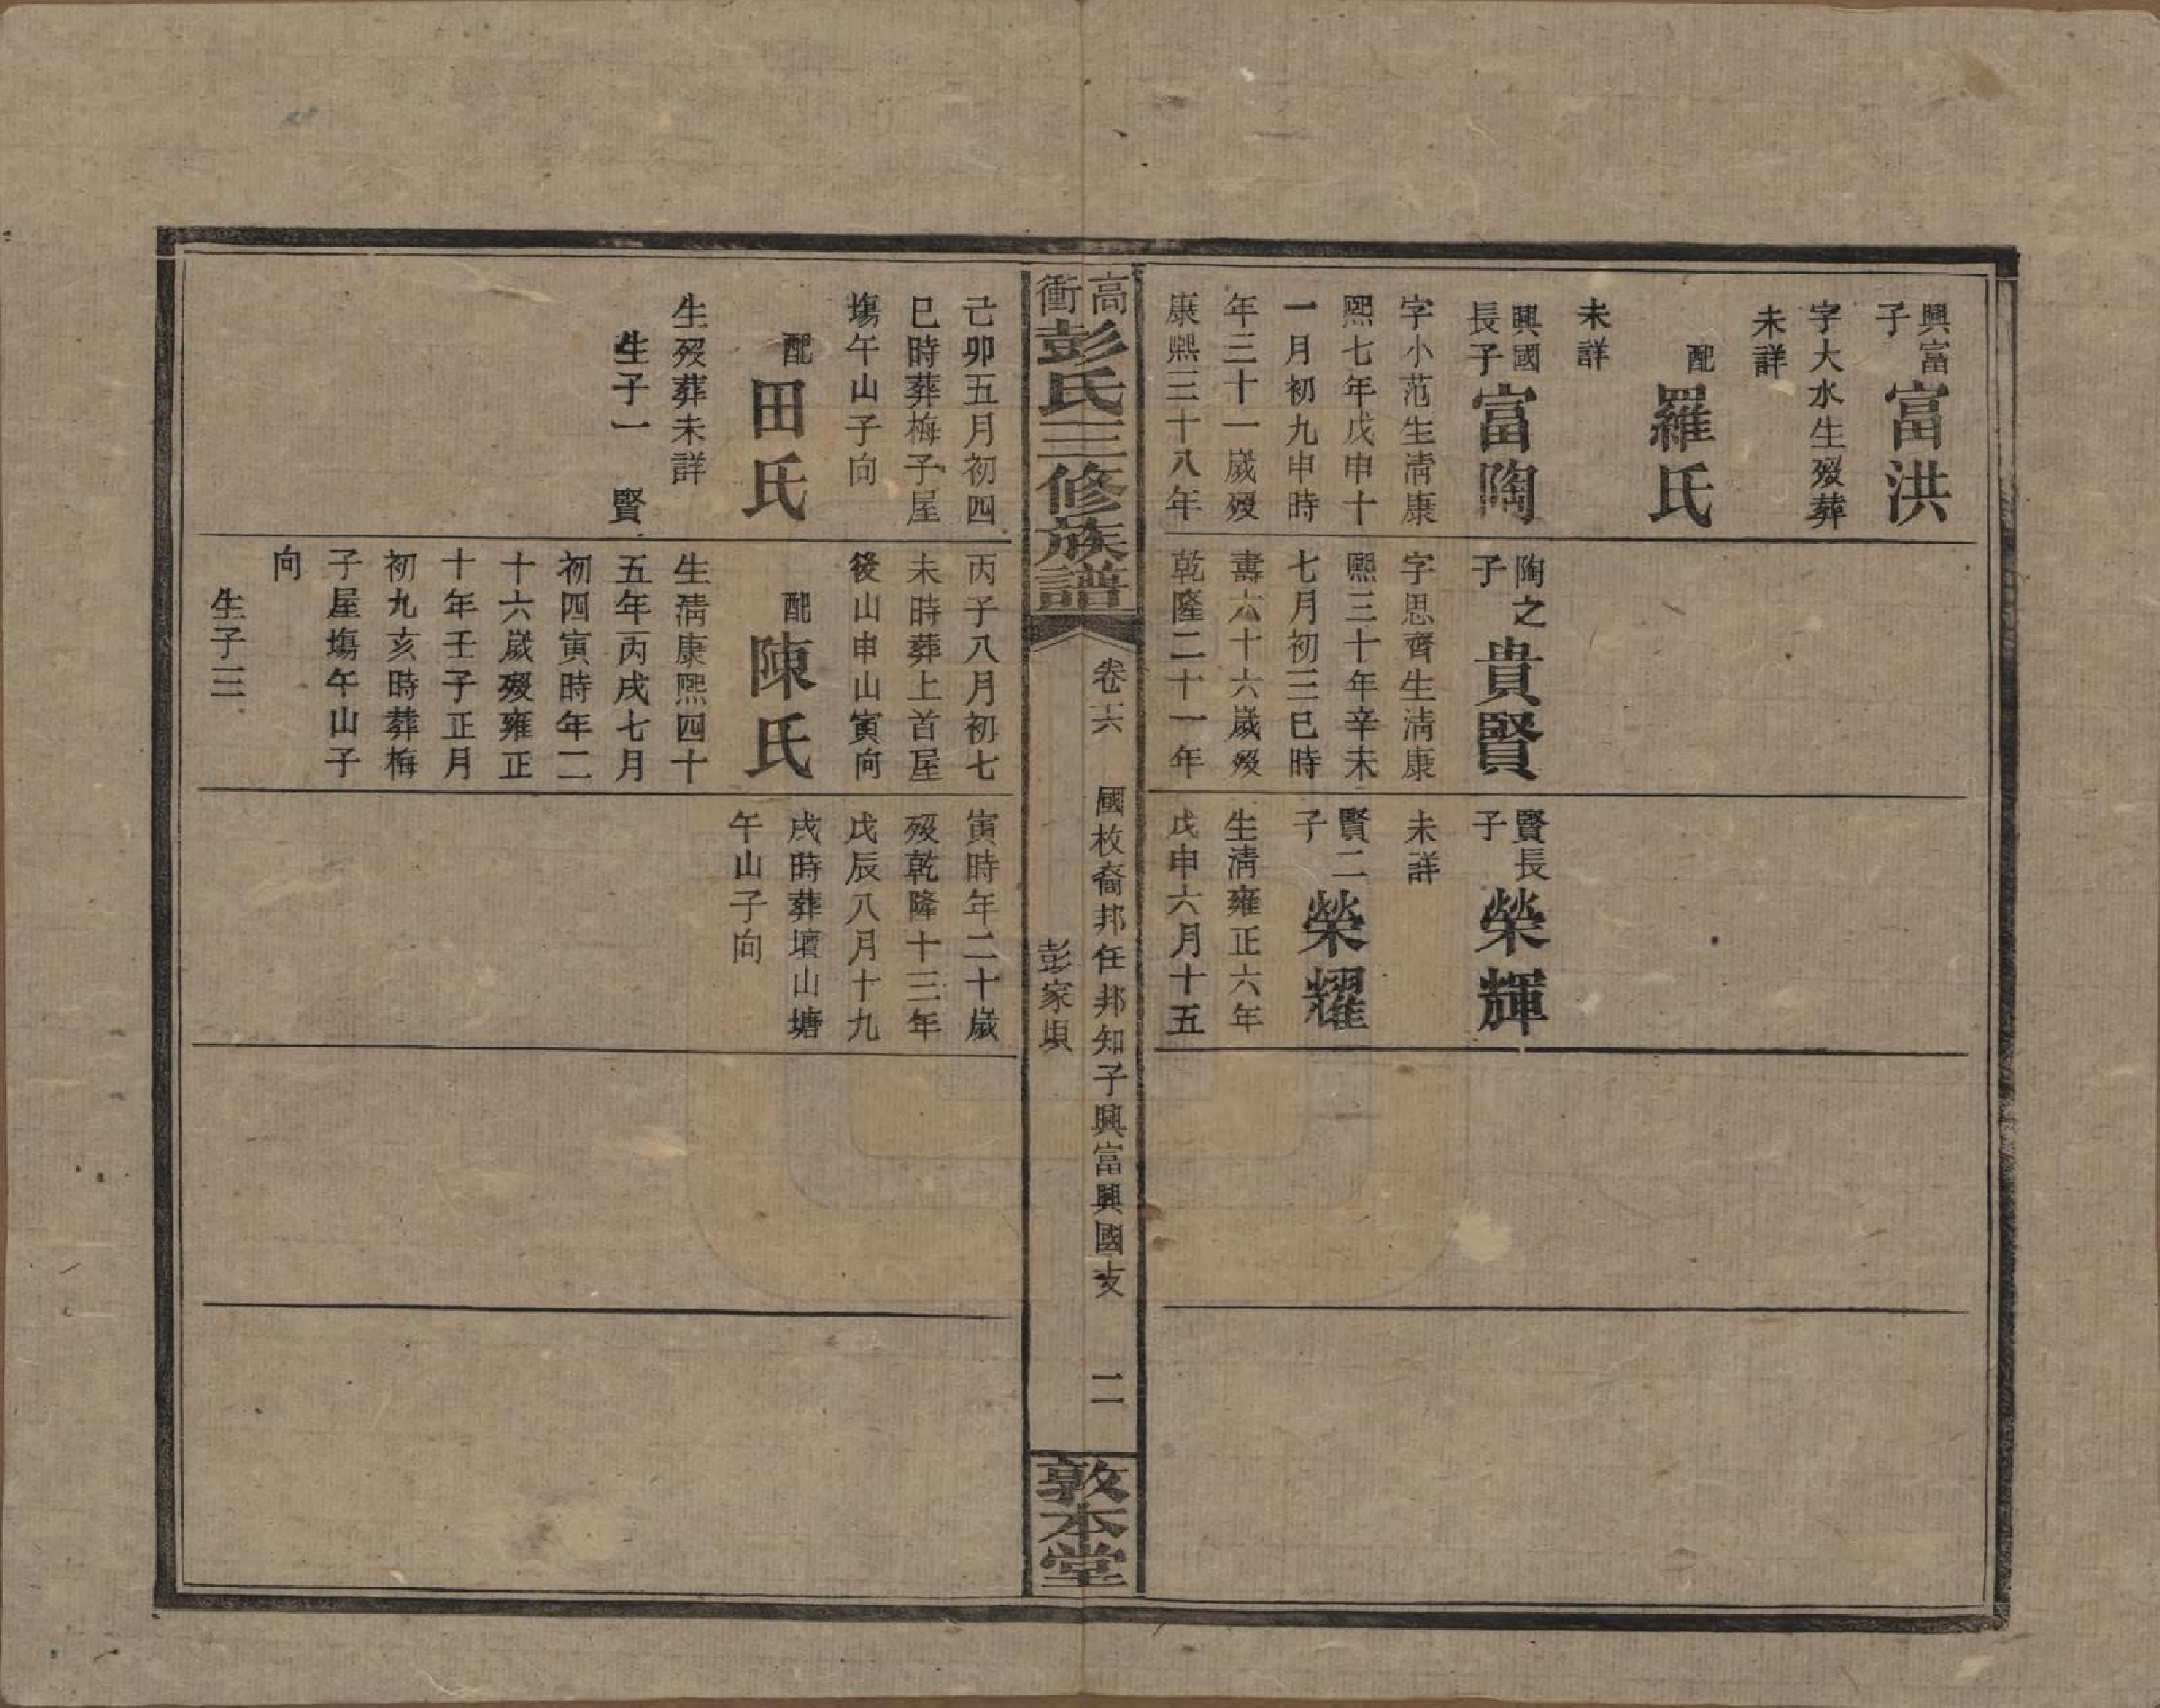 興富
子
富洪
字大水生歿葬
未詳
配
羅氏
未詳
興國
長子
富陶
字小范生清康
熙七年戊申十
一月初九申時
年三十一歲歿
康熙三十八年
陶之
子
貴賢
字思齊生清康
熙三十年辛未
七月初三巳時
壽六十六歲歿
乾隆二十一年
賢長
子
榮輝
未詳
賢二
子
榮耀
生清雍正六年
戊申六月十五
高
衝
彭氏三修族譜
卷六
國枚裔邦任邦知子興富興國支
彭家垻
二
敦本堂
己卯五月初四
巳時葬梅子屋
塲午山子向
配
田氏
生歿葬未詳
生子一 賢
丙子八月初七
未時葬上首屋
後山申山寅向
配
陳氏
生清康熙四十
五年丙戌七月
初四寅時年二
十六歲歿雍正
十年壬子正月
初九亥時葬梅
子屋塲午山子
向
生子三
寅時年二十歲
歿乾隆十三年
戊辰八月十九
戌時葬壇山塘
午山子向